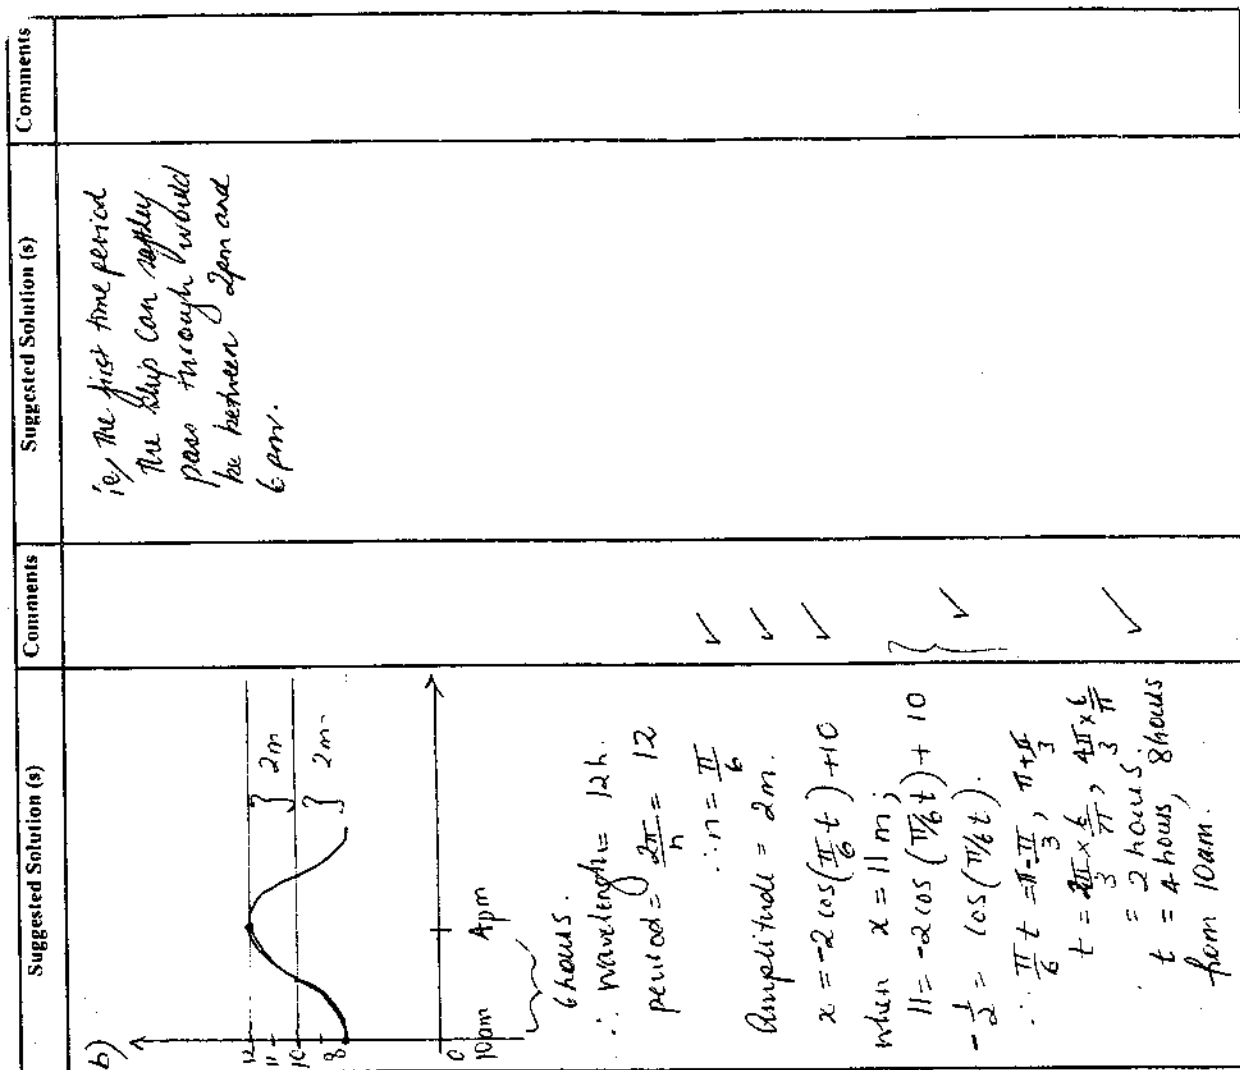 Suggested Solution (s)
Comments
Suggested Solution (s)
Comments
b)
12
11
10
8
0
} 2m
} 2m
10am 4pm
6 hours.
∴ wavelength = 12h.
period = 2π/n = 12
∴ n = π/6 ✓
Amplitude = 2m. ✓
x = -2 cos(π/6 t) + 10 ✓
when x = 11 m;
11 = -2 cos (π/6 t) + 10
-1/2 = cos (π/6 t). ✓
∴ π/6 t = π - π/3, π + π/3
t = 2π/3 × 6/π, 4π/3 × 6/π
= 2 hours. ✓
t = 4 hours, 8 hours
from 10am.
ie, the first time period
the ship can safely
pass through would
be between 2pm and
6 pm.